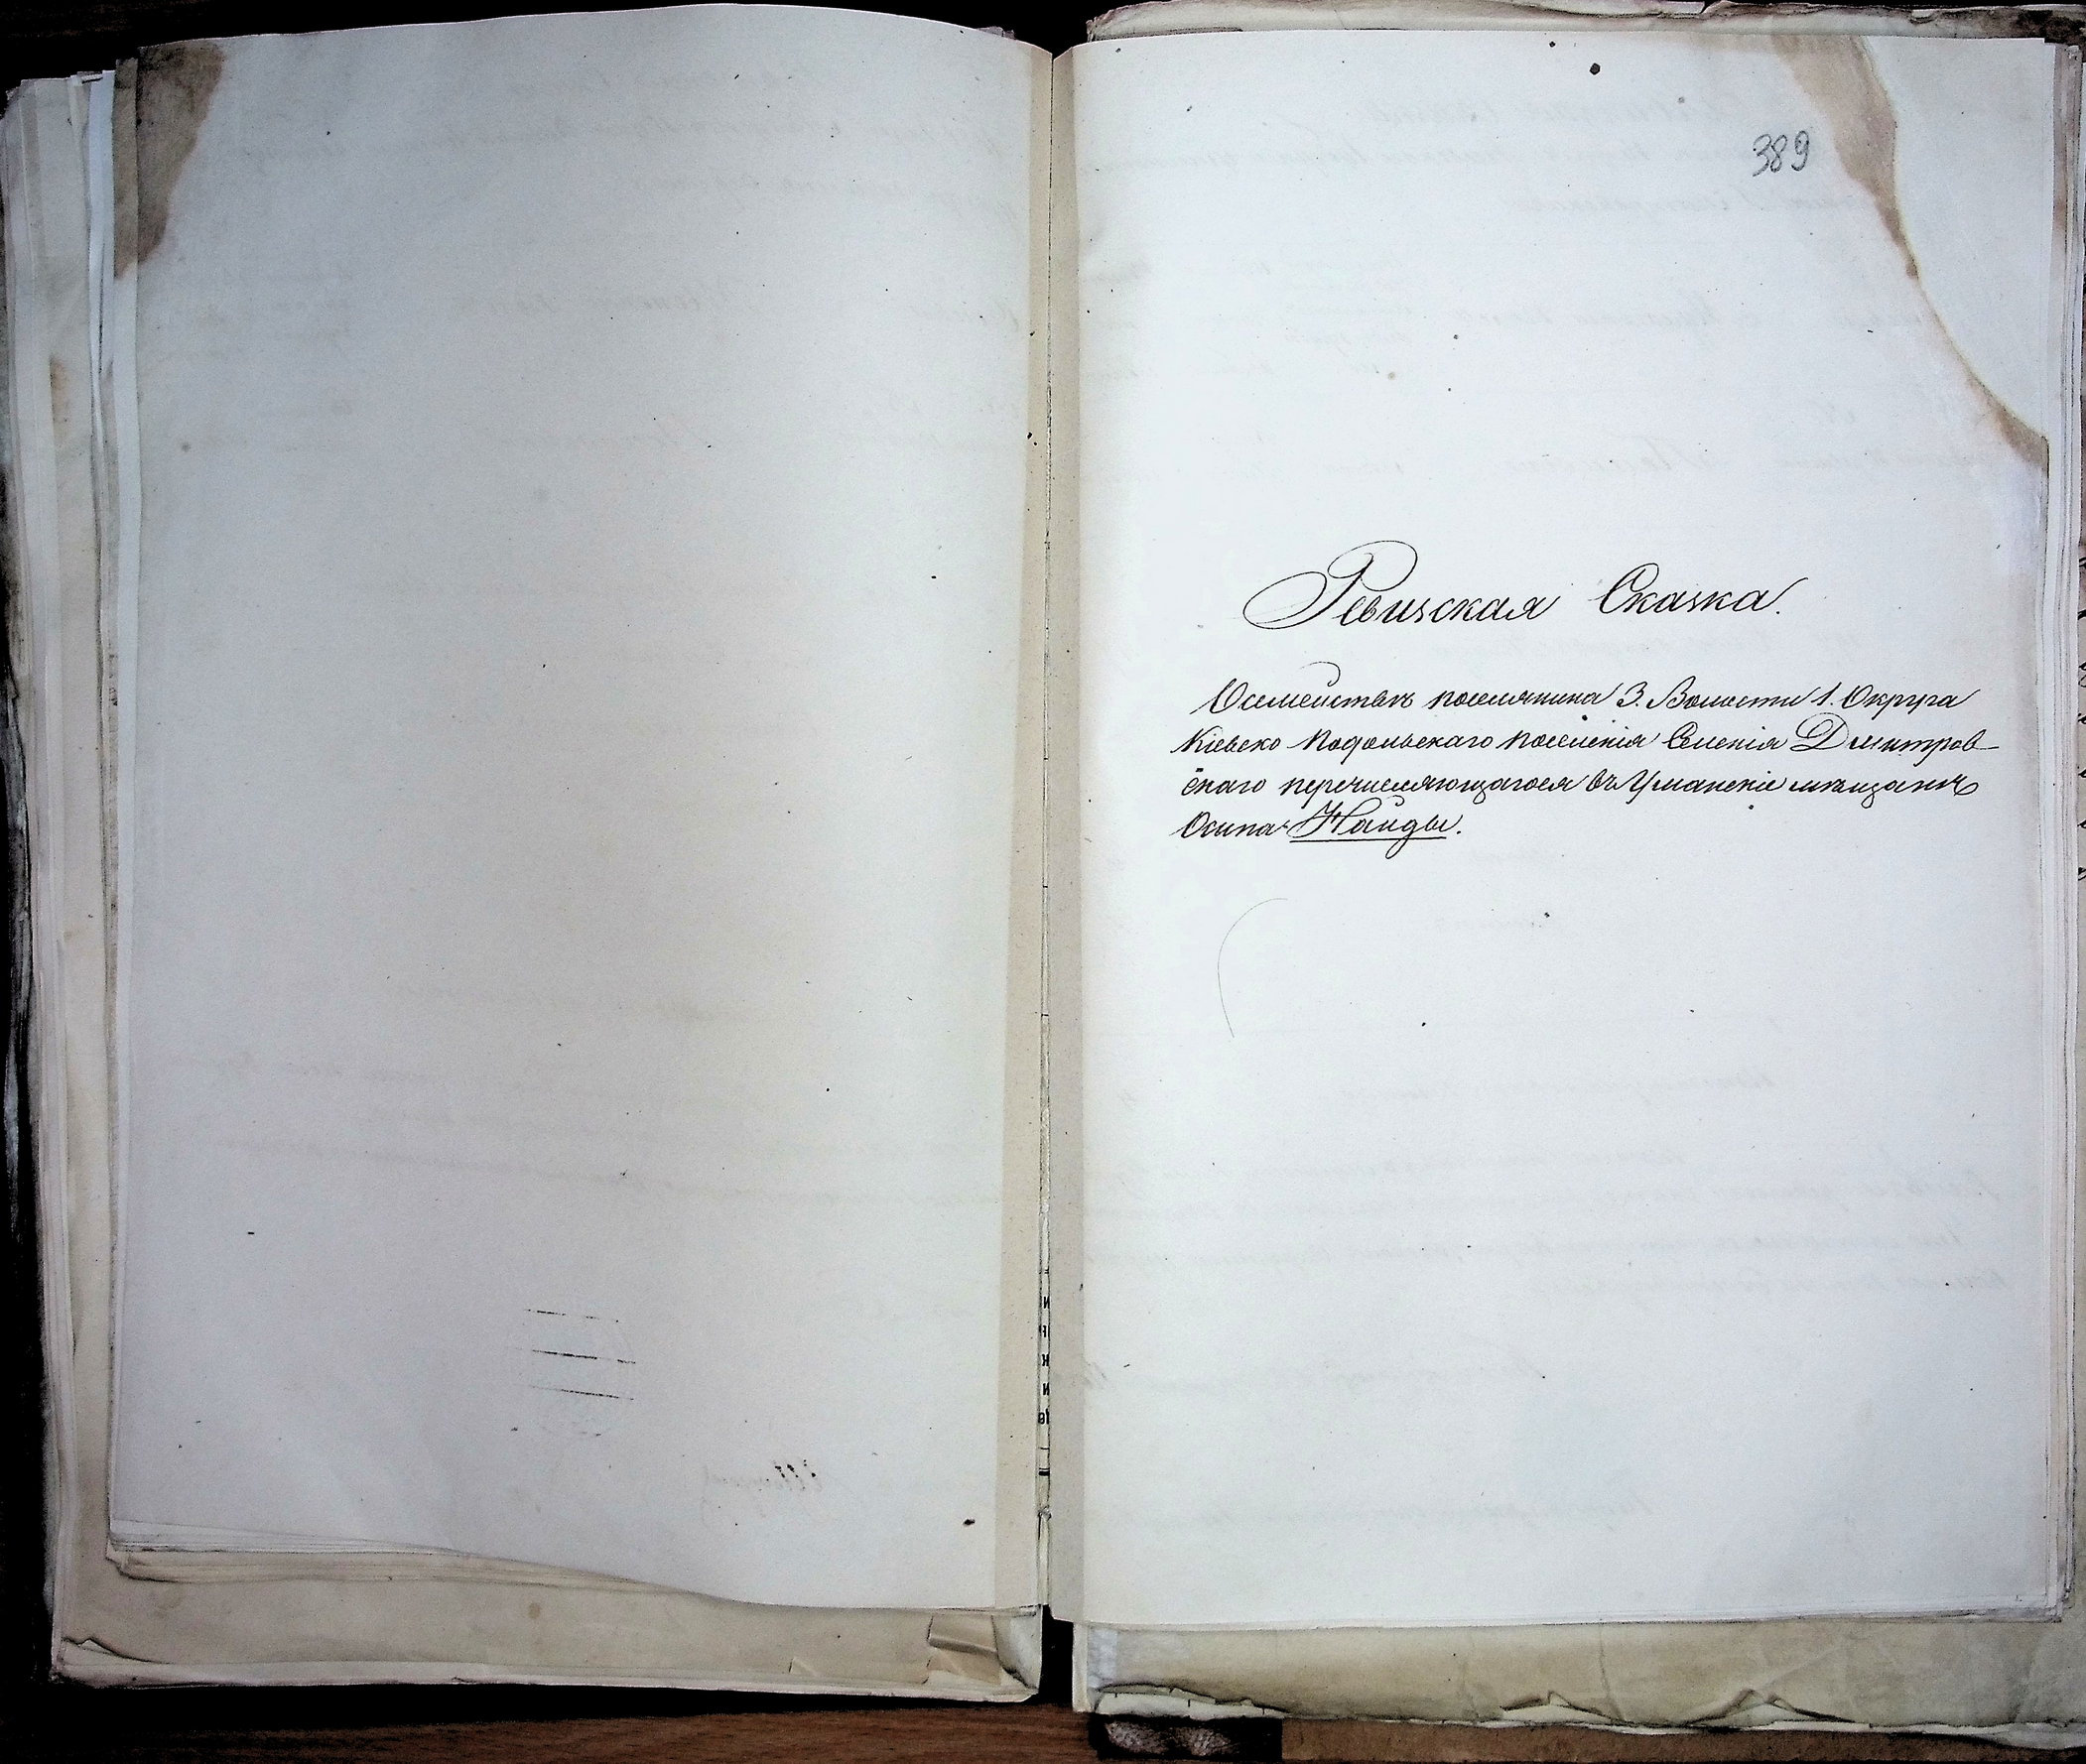 389
Ревизская Сказка.
О семействѣ поселянина 3. Волости 1. Округа
Кіевско Подольскаго поселенія Селенія Дмитров-
скаго перечисляющагося въ Уманскіе мѣщане
Осипа Найды.